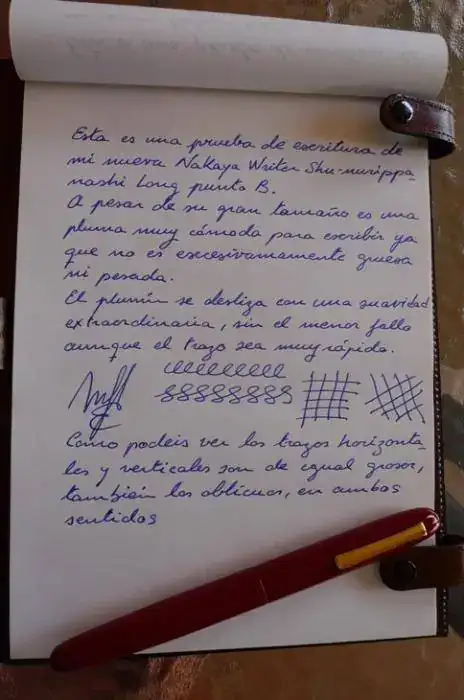 Esta es una prueba de escritura de
mi nueva Nakaya Writer Shu-nurippa
nashi Long punto B.
A pesar de su gran tamaño es una
pluma muy cómoda para escribir ya
que no es excesivamamente gruesa
ni pesada.
El plumín se desliza con una suavidad
extraordinaria, sin el menor fallo
aunque el trazo sea muy rápido.
lllllllllll
88888888
Como podeis ver los trazos horizonta-
les y verticales son de igual grosor,
también los oblicuos, en ambos
sentidos